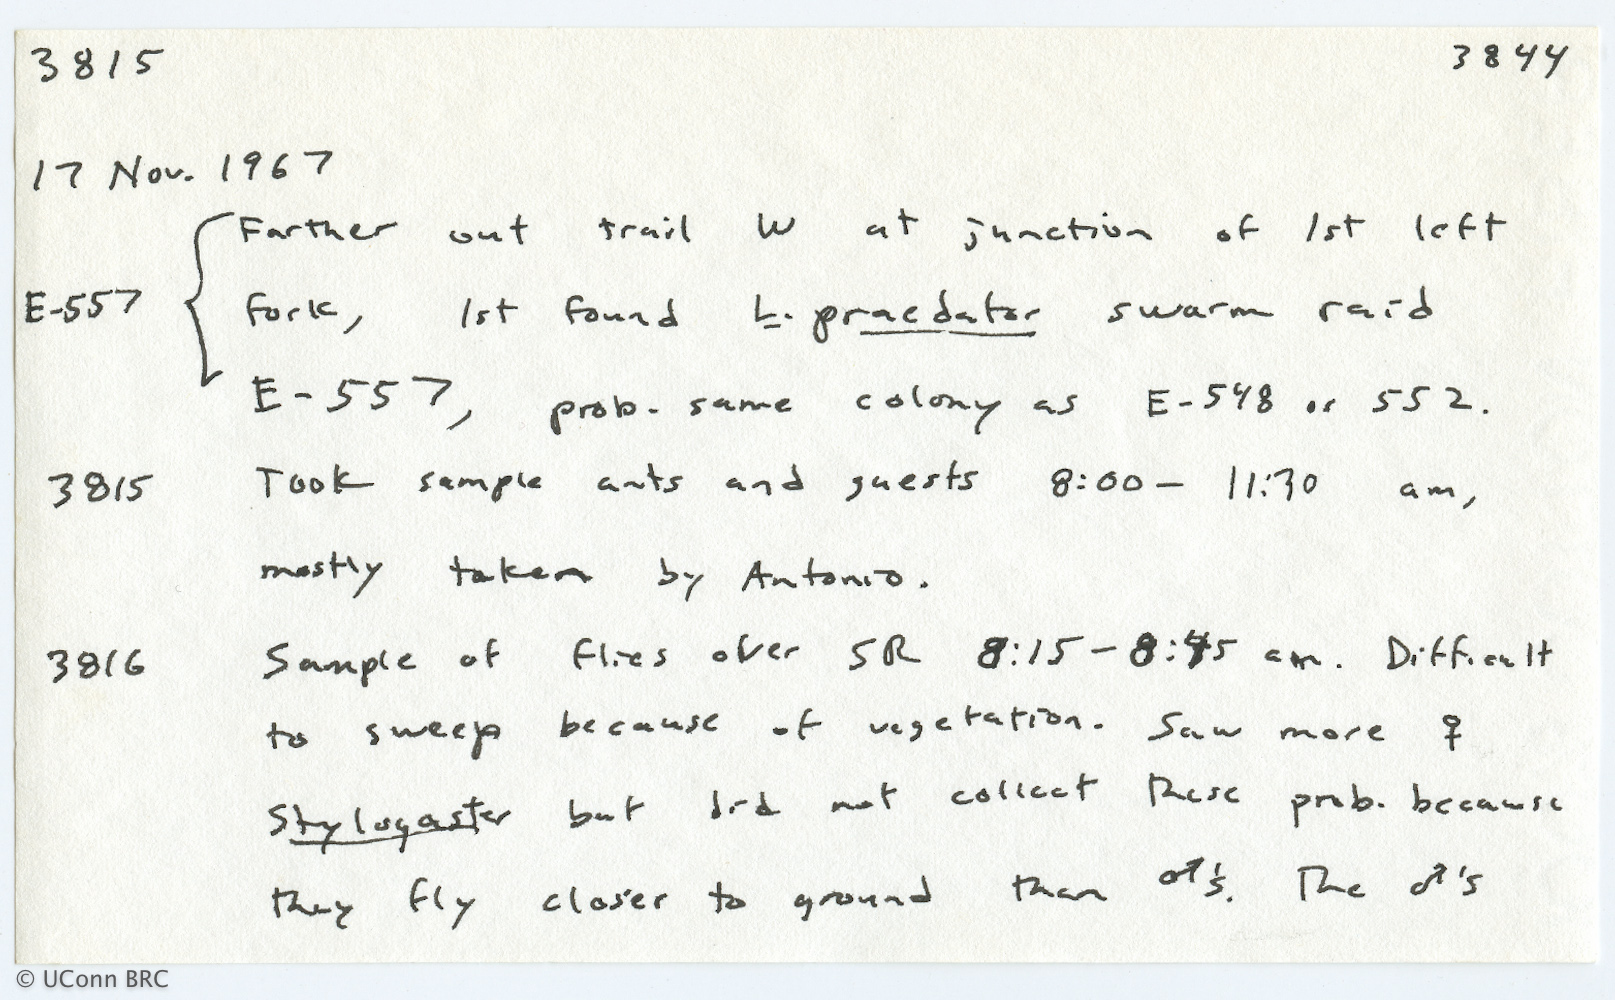 3815 3844
17 Nov. 1967
Farther out trail W at junction of 1st left
E-557 fork, 1st found L. praedator swarm raid
E-557, prob. same colony as E-548 or 552.
3815 Took sample ants and guests 8:00 - 11:30 am,
mostly taken by Antonio.
3816 Sample of flies over SR 8:15 - 8:45 am. Difficult
to sweep because of vegetation. Saw more ♀
Stylogaster but did not collect these prob. because
they fly closer to ground than ♂'s. The ♂'s
© UConn BRC